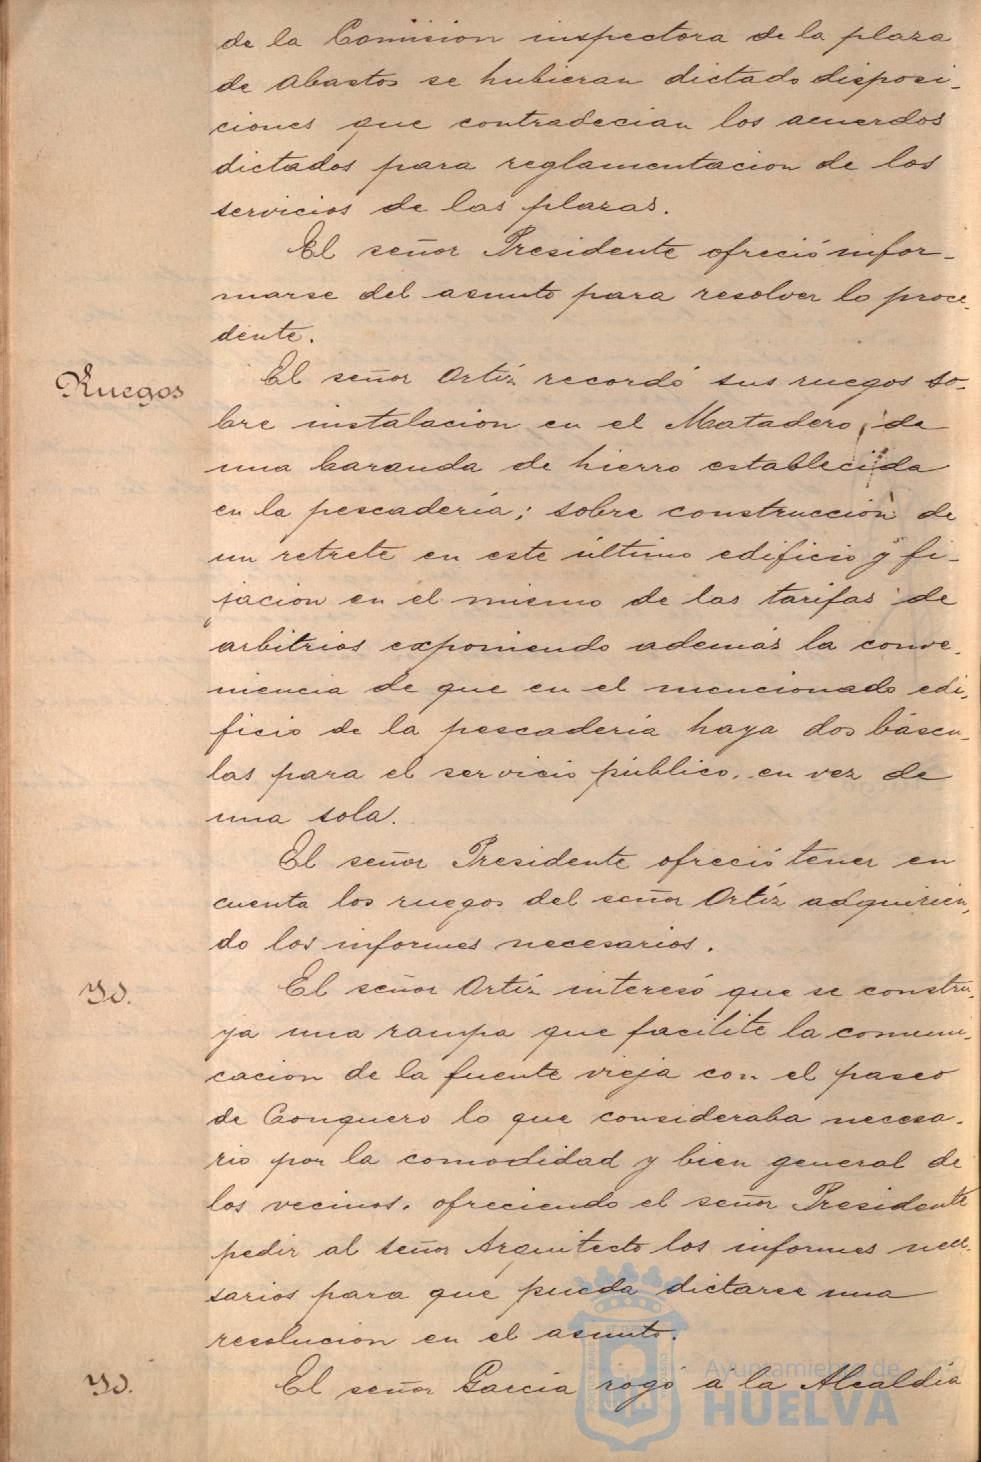 de la Comision inspectora de la plaza
de abastos se hubieran dictado disposi-
ciones que contradecian los acuerdos
dictados para reglamentacion de los
servicios de las plazas.
El señor Presidente ofreció infor-
marse del asunto para resolver lo proce-
dente.
Ruegos
El señor Ortíz recordó sus ruegos so-
bre instalacion en el Matadero, de
una baranda de hierro establecida
en la pescadería; sobre construcción de
un retrete en este último edificio y fi-
jacion en el mismo de las tarifas de
arbitrios exponiendo además la conve-
niencia de que en el mencionado edi-
ficio de la pescadería haya dos báscu-
las para el servicio público, en vez de
una sola.
El señor Presidente ofreció tener en
cuenta los ruegos del señor Ortíz adquirien-
do los informes necesarios.
Yd.
El señor Ortíz interesó que se constru-
ya una rampa que facilite la comuni-
cacion de la fuente vieja con el paseo
de Conquero lo que consideraba necesa-
rio por la comodidad y bien general de
los vecinos, ofreciendo el señor Presidente
pedir al señor Arquitecto los informes nece-
sarios para que pueda dictarse una
resolucion en el asunto.
Yd.
El señor García rogó á la Alcaldía
Ayuntamiento de
HUELVA